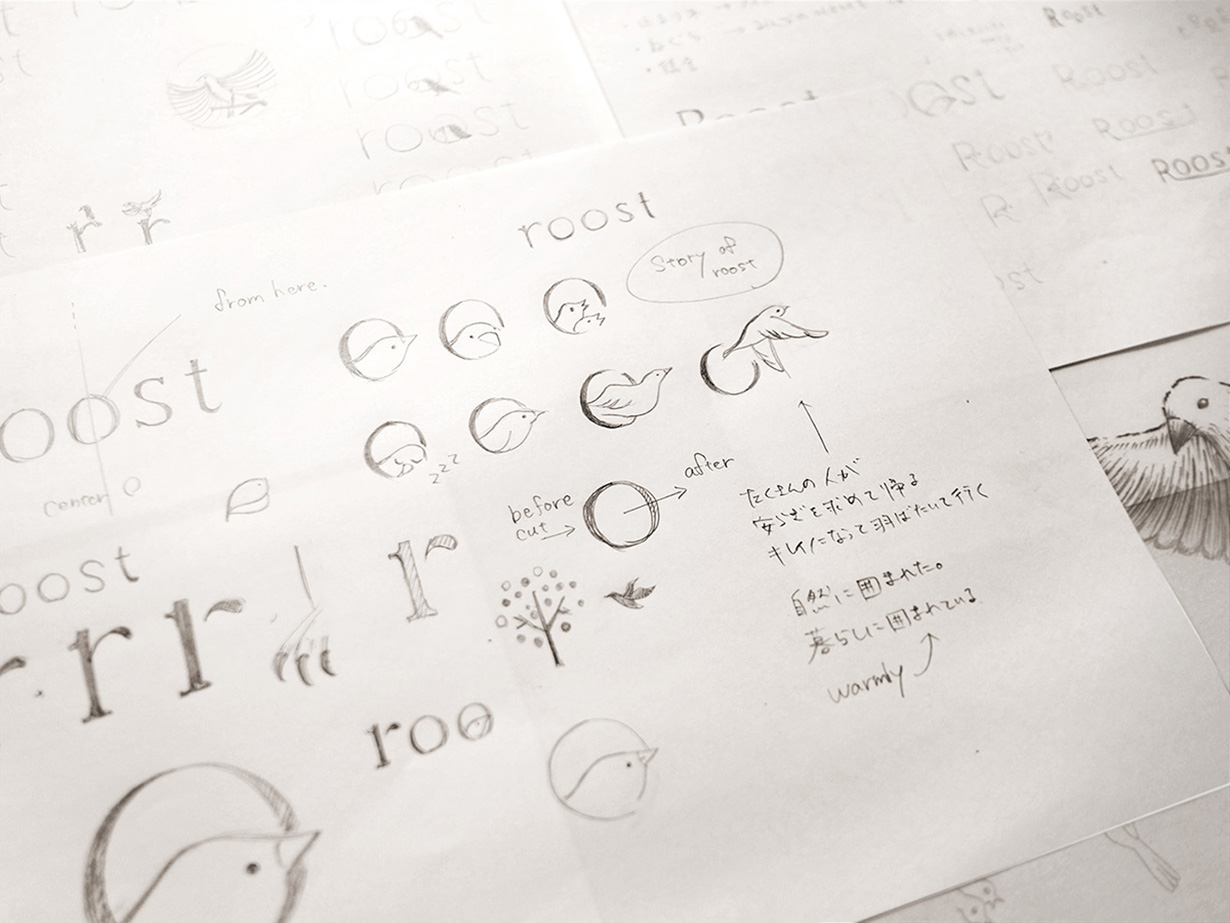 roost
roost
roost
Roost
Roost
Roost
Roost
Roost
Roost
r r
roost
Story of
roost
from here.
oost
center
zzz
before
cut
after
たくさんの人が
安らぎを求めて帰る
キレイになって羽ばたいて行く
自然に囲まれた。
暮らしに囲まれている
warmly
oost
r r r
roo